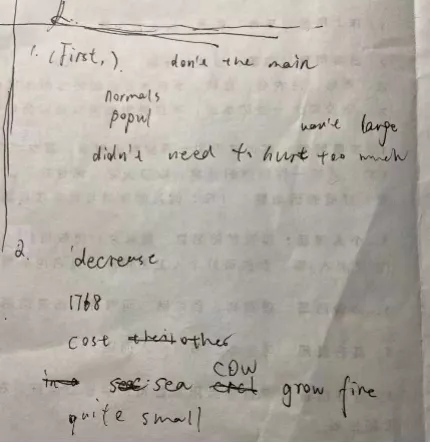 L.
1. (First,) don't the main
normals
popul
won't large
didn't need to hurt too much
2. decrease
1768
cost their other
in sea: sea cow grow fine
quite small